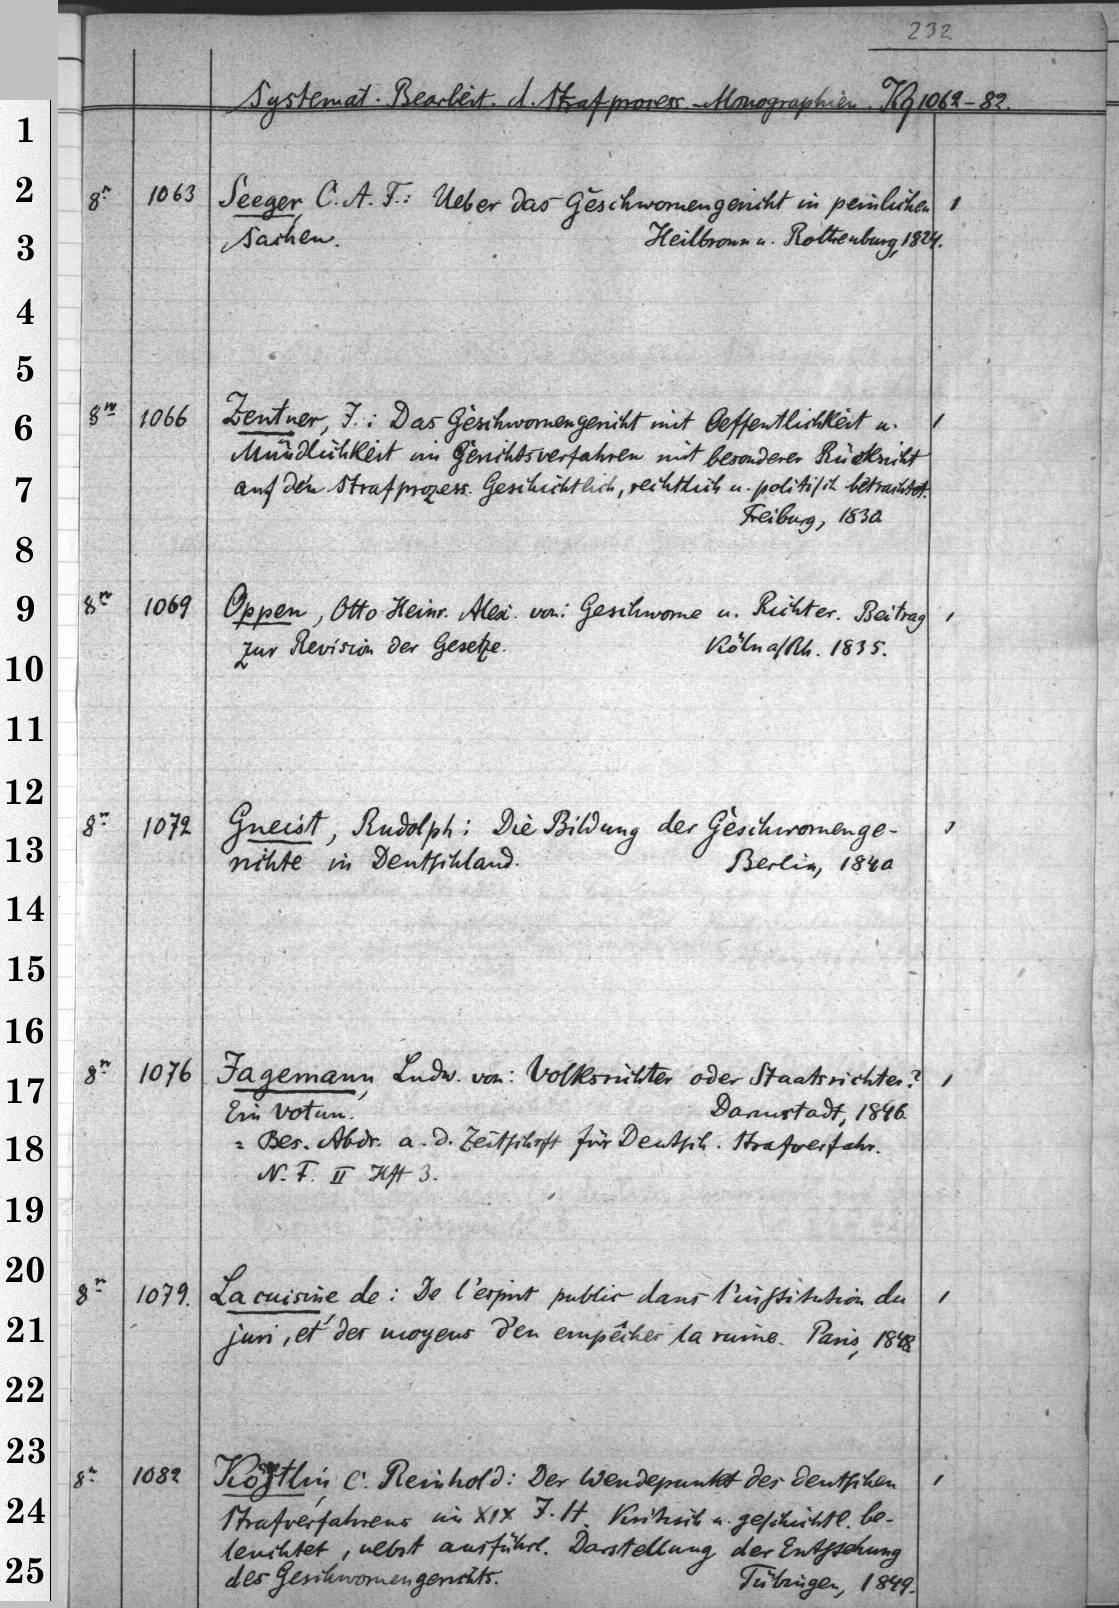 232
Systemat. Bearbeit. d. Strafprozess. - Monographien. Kg 1062-82.
1
2
3
4
5
6
7
8
9
10
11
12
13
14
15
16
17
18
19
20
21
22
23
24
25
8° 1063 Seeger, C. A. F.: Ueber das Geschwornengericht in peinlichen 1
Sachen. Heilbronn u. Rothenburg, 1824.
8° 1066 Zentner, J.: Das Geschwornengericht mit Oeffentlichkeit u. 1
Mündlichkeit im Gerichtsverfahren mit besonderer Rücksicht
auf den Strafprozess. Geschichtlich, rechtlich u. politisch betrachtet.
Freiburg, 1830
8° 1069 Oppen, Otto Heinr. Alex. von: Geschworne u. Richter. Beitrag 1
zur Revision der Gesetze. Köln a/Rh. 1835.
8° 1072 Gneist, Rudolph: Die Bildung der Geschwornenge- 1
richte in Deutschland. Berlin, 1840
8° 1076 Jagemann, Ludw. von: Volksrichter oder Staatsrichter? 1
Ein Votum. Darmstadt, 1846
= Bes. Abdr. a. d. Zeitschrft für Deutsch. Strafverfahr.
N. F. II Hft 3.
8° 1079. Lacuisine, de: De l'esprit public dans l'institution du 1
juri, et des moyens d'en empêcher la ruine. Paris, 1848
8° 1082 Köstlin, C. Reinhold: Der Wendepunkt des deutschen 1
Strafverfahrens im XIX J. H. Kritisch u. geschichtl. be-
leuchtet, nebst ausführl. Darstellung der Entstehung
des Geschwornengerichts. Tübingen, 1849.